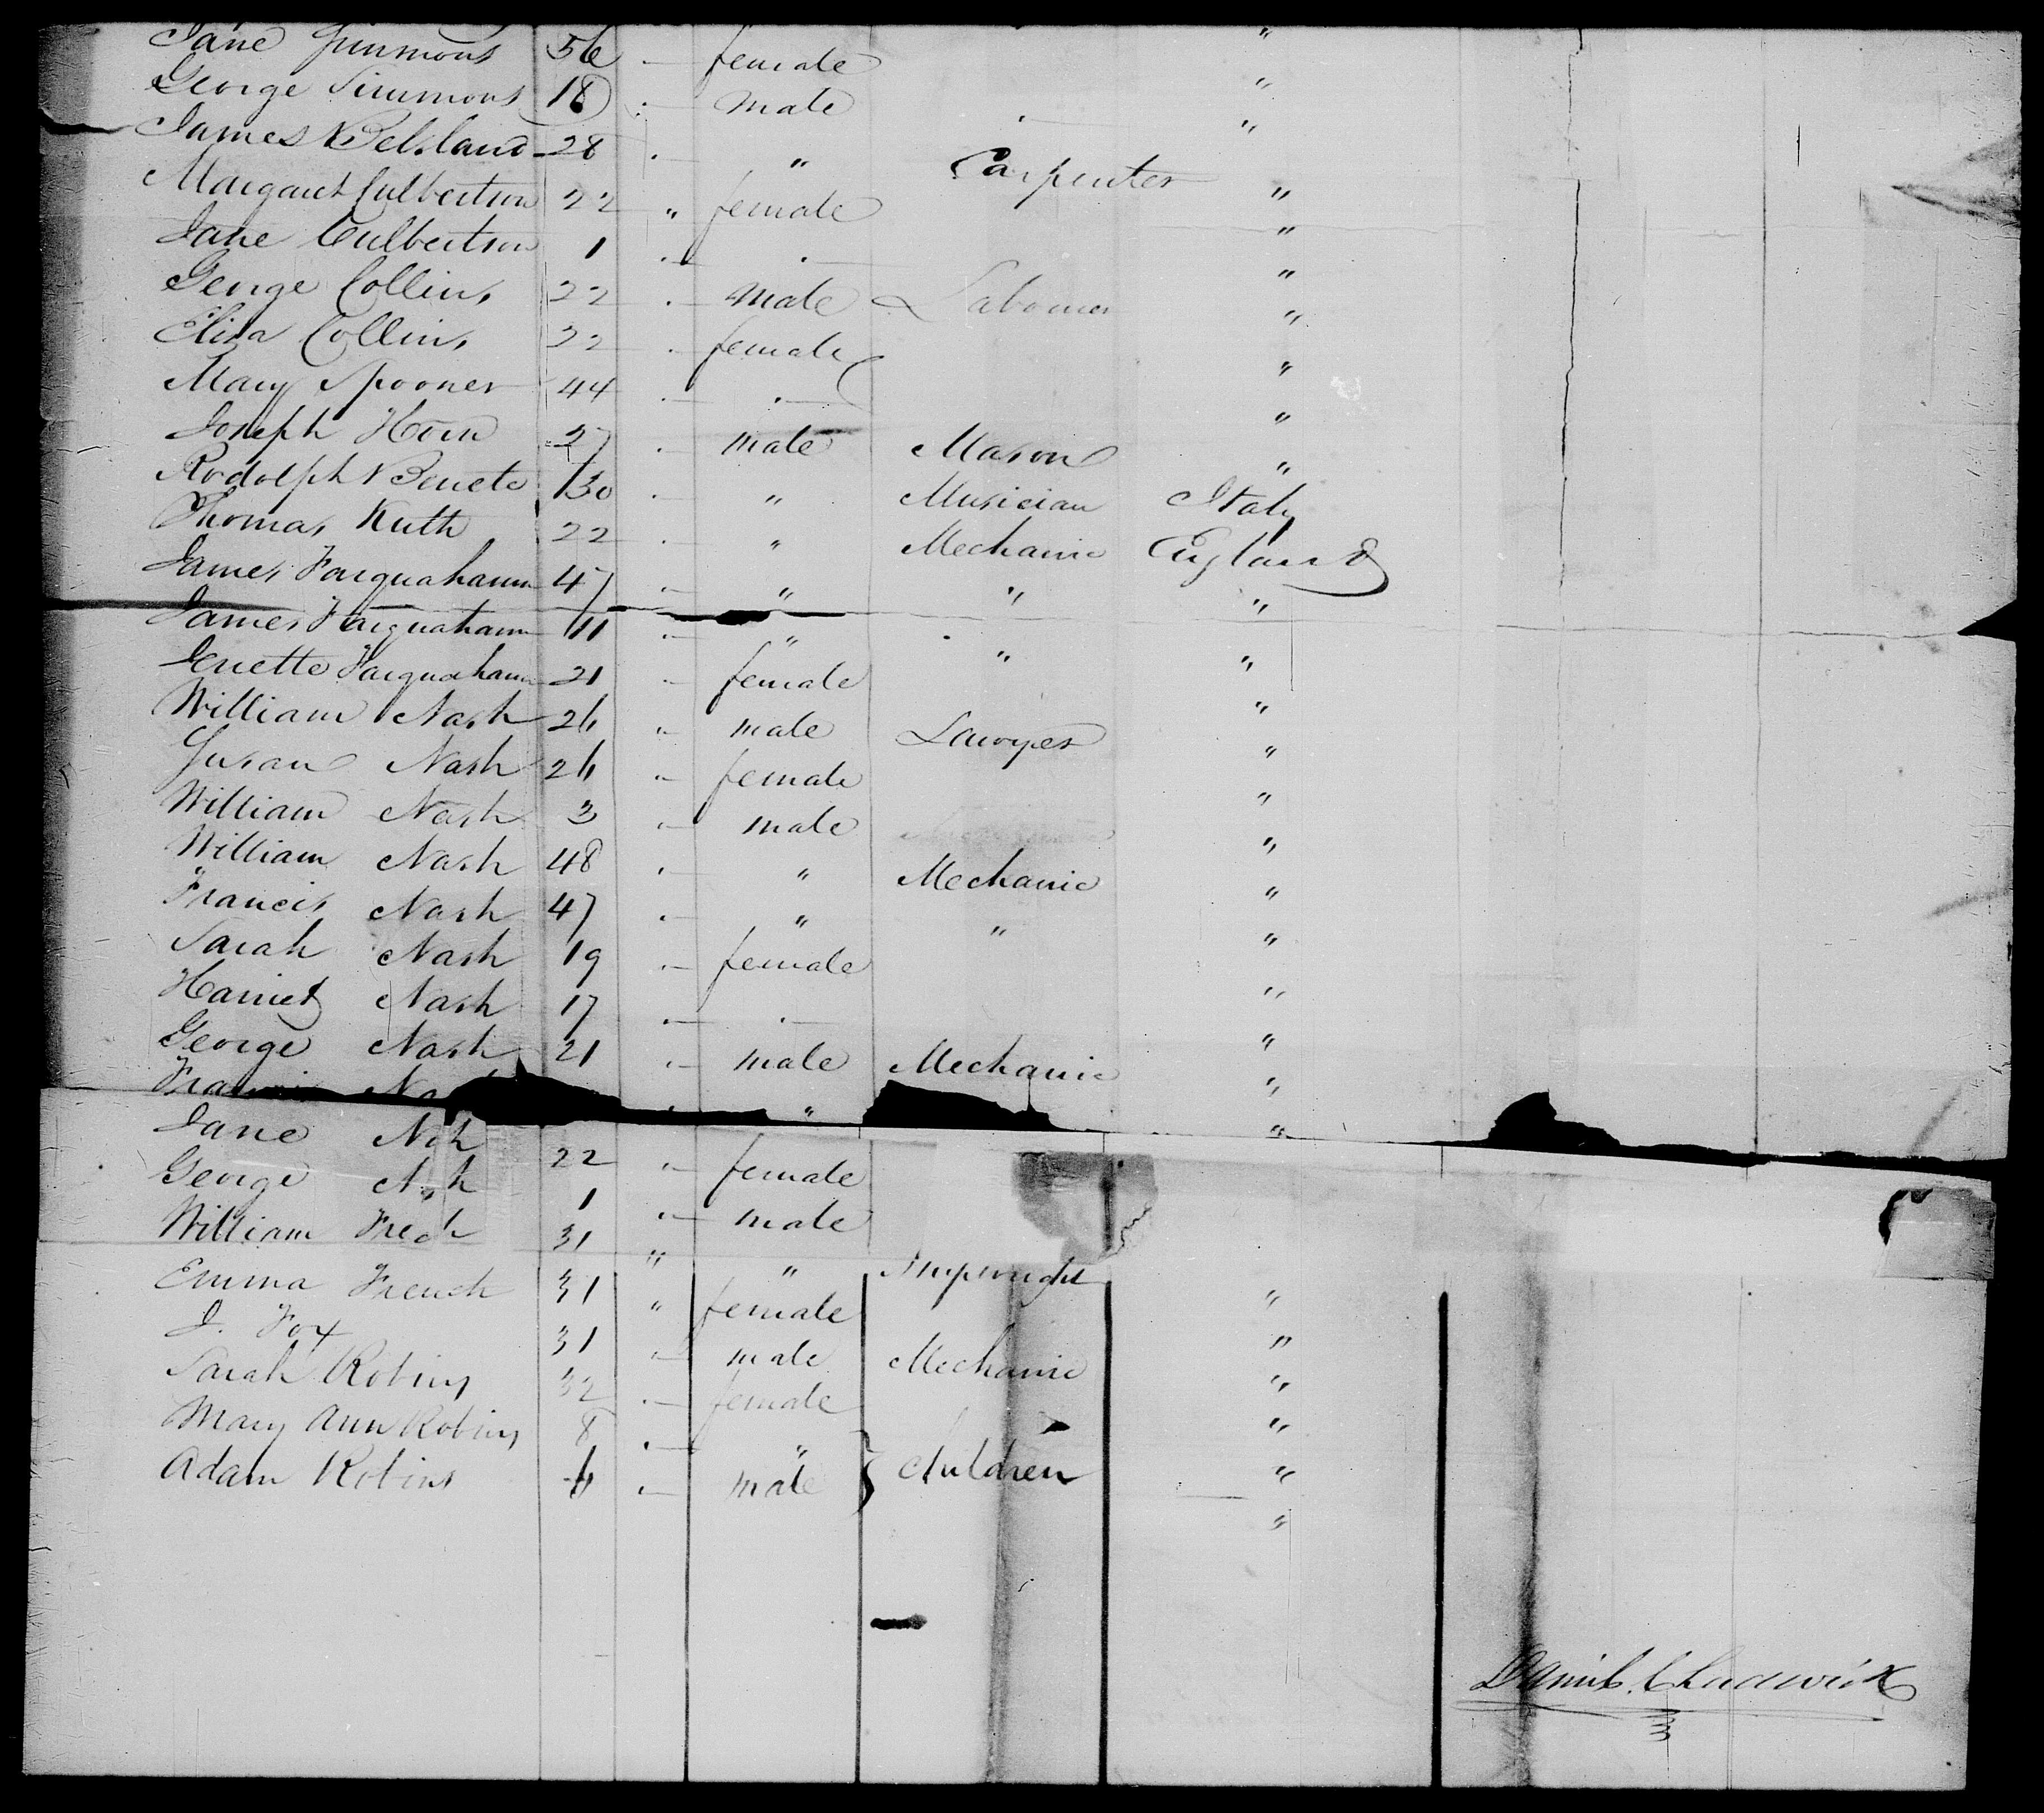 Jane Simmons 56 " female "
George Simmons 18 " male "
James Belsland 28 " " Carpenter "
Margaret Culbertson 22 " female "
Jane Culbertson 1 " " "
George Collins 22 " male Labourer "
Eliza Collins 22 " female "
Mary Spooner 44 " " "
Joseph Horn 27 " male Mason "
Rodolph Benete 30 " " Musician Italy
Thomas Ruth 22 " " Mechanic England
James Farquaharm 47 " " " "
James Farquaharm 11 " " " "
Jenette Farquaharm 21 " female "
William Nash 26 " male Lawyer "
Susan Nash 26 " female "
William Nash 3 " male "
William Nash 48 " " Mechanic "
Francis Nash 47 " " " "
Sarah Nash 19 " female "
Harriet Nash 17 " " "
George Nash 21 " male Mechanic "
" " "
Jane 22 " female
George 1 " male
William 31 " " Shipwright
Emma French 31 " female "
J. Fox 31 " male Mechanic "
Sarah Robins 32 " female "
Mary Ann Robins 8 " " "
Adam Robins " male } Children "
Daniel Chadwick